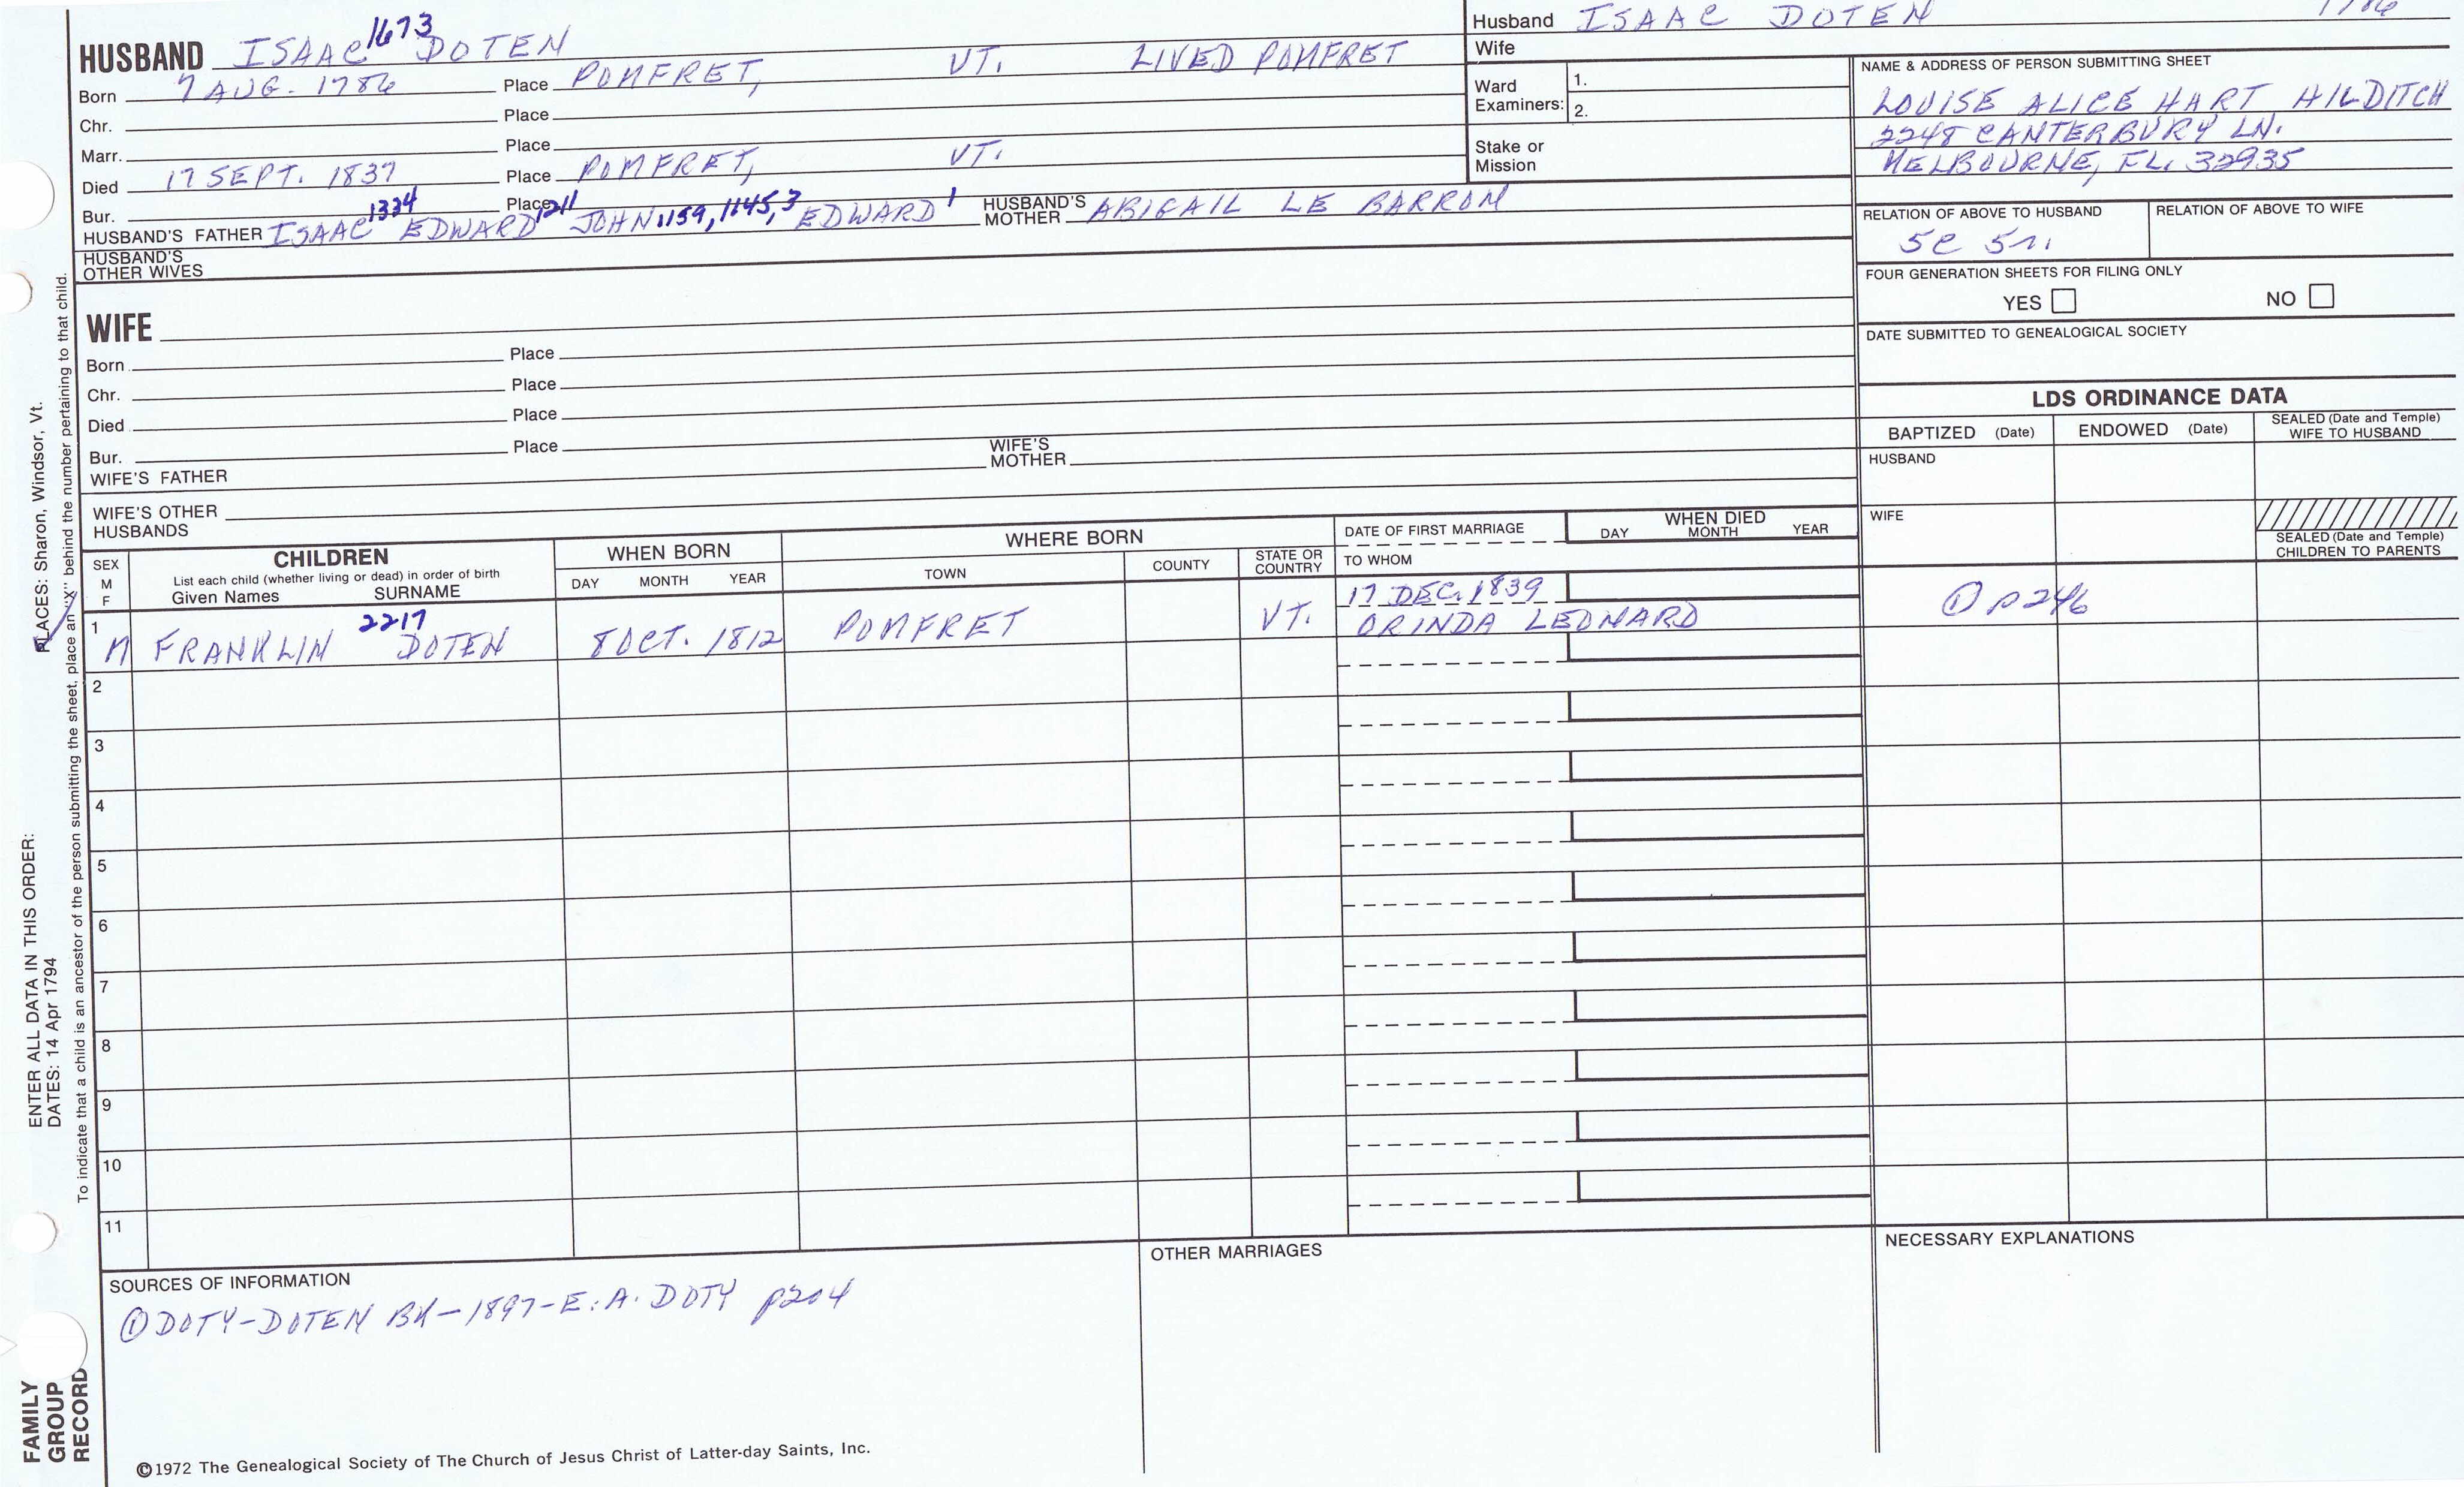 HUSBAND ISAAC 1673 DOTEN
Born 7 AUG. 1786 Place POMFRET, VT. LIVED POMFRET
Chr. Place
Marr. Place
Died 17 SEPT. 1837 Place POMFRET, VT.
Bur. Place
HUSBAND'S FATHER ISAAC 1334 EDWARD 1211 JOHN 1159, 1145, 3 EDWARD 1 HUSBAND'S MOTHER ABIGAIL LE BARRON
HUSBAND'S OTHER WIVES
Husband ISAAC DOTEN 1786
Wife
Ward Examiners: 1.
2.
Stake or Mission
NAME & ADDRESS OF PERSON SUBMITTING SHEET
LOUISE ALICE HART HILDITCH
2248 CANTERBURY LN.
MELBOURNE, FL. 32935
RELATION OF ABOVE TO HUSBAND RELATION OF ABOVE TO WIFE
5C 5r.
FOUR GENERATION SHEETS FOR FILING ONLY
YES NO
DATE SUBMITTED TO GENEALOGICAL SOCIETY
WIFE
Born Place
Chr. Place
Died Place
Bur. Place
WIFE'S FATHER WIFE'S MOTHER
WIFE'S OTHER HUSBANDS
LDS ORDINANCE DATA
BAPTIZED (Date) ENDOWED (Date) SEALED (Date and Temple) WIFE TO HUSBAND
HUSBAND
WIFE
SEALED (Date and Temple) CHILDREN TO PARENTS
SEX M F CHILDREN WHEN BORN WHERE BORN DATE OF FIRST MARRIAGE WHEN DIED
List each child (whether living or dead) in order of birth
Given Names SURNAME DAY MONTH YEAR TOWN COUNTY STATE OR COUNTRY TO WHOM DAY MONTH YEAR
17 DEC. 1839
1 M FRANKLIN 2217 DOTEN 8 OCT. 1812 POMFRET VT. ORINDA LEONARD ① p246
2
3
4
5
6
7
8
9
10
11
SOURCES OF INFORMATION
① DOTY-DOTEN BK-1897-E.A. DOTY p204
OTHER MARRIAGES
NECESSARY EXPLANATIONS
©1972 The Genealogical Society of The Church of Jesus Christ of Latter-day Saints, Inc.
FAMILY
GROUP
RECORD
ENTER ALL DATA IN THIS ORDER:
DATES: 14 Apr 1794
PLACES: Sharon, Windsor, Vt.
To indicate that a child is an ancestor of the person submitting the sheet, place an "X" behind the number pertaining to that child.